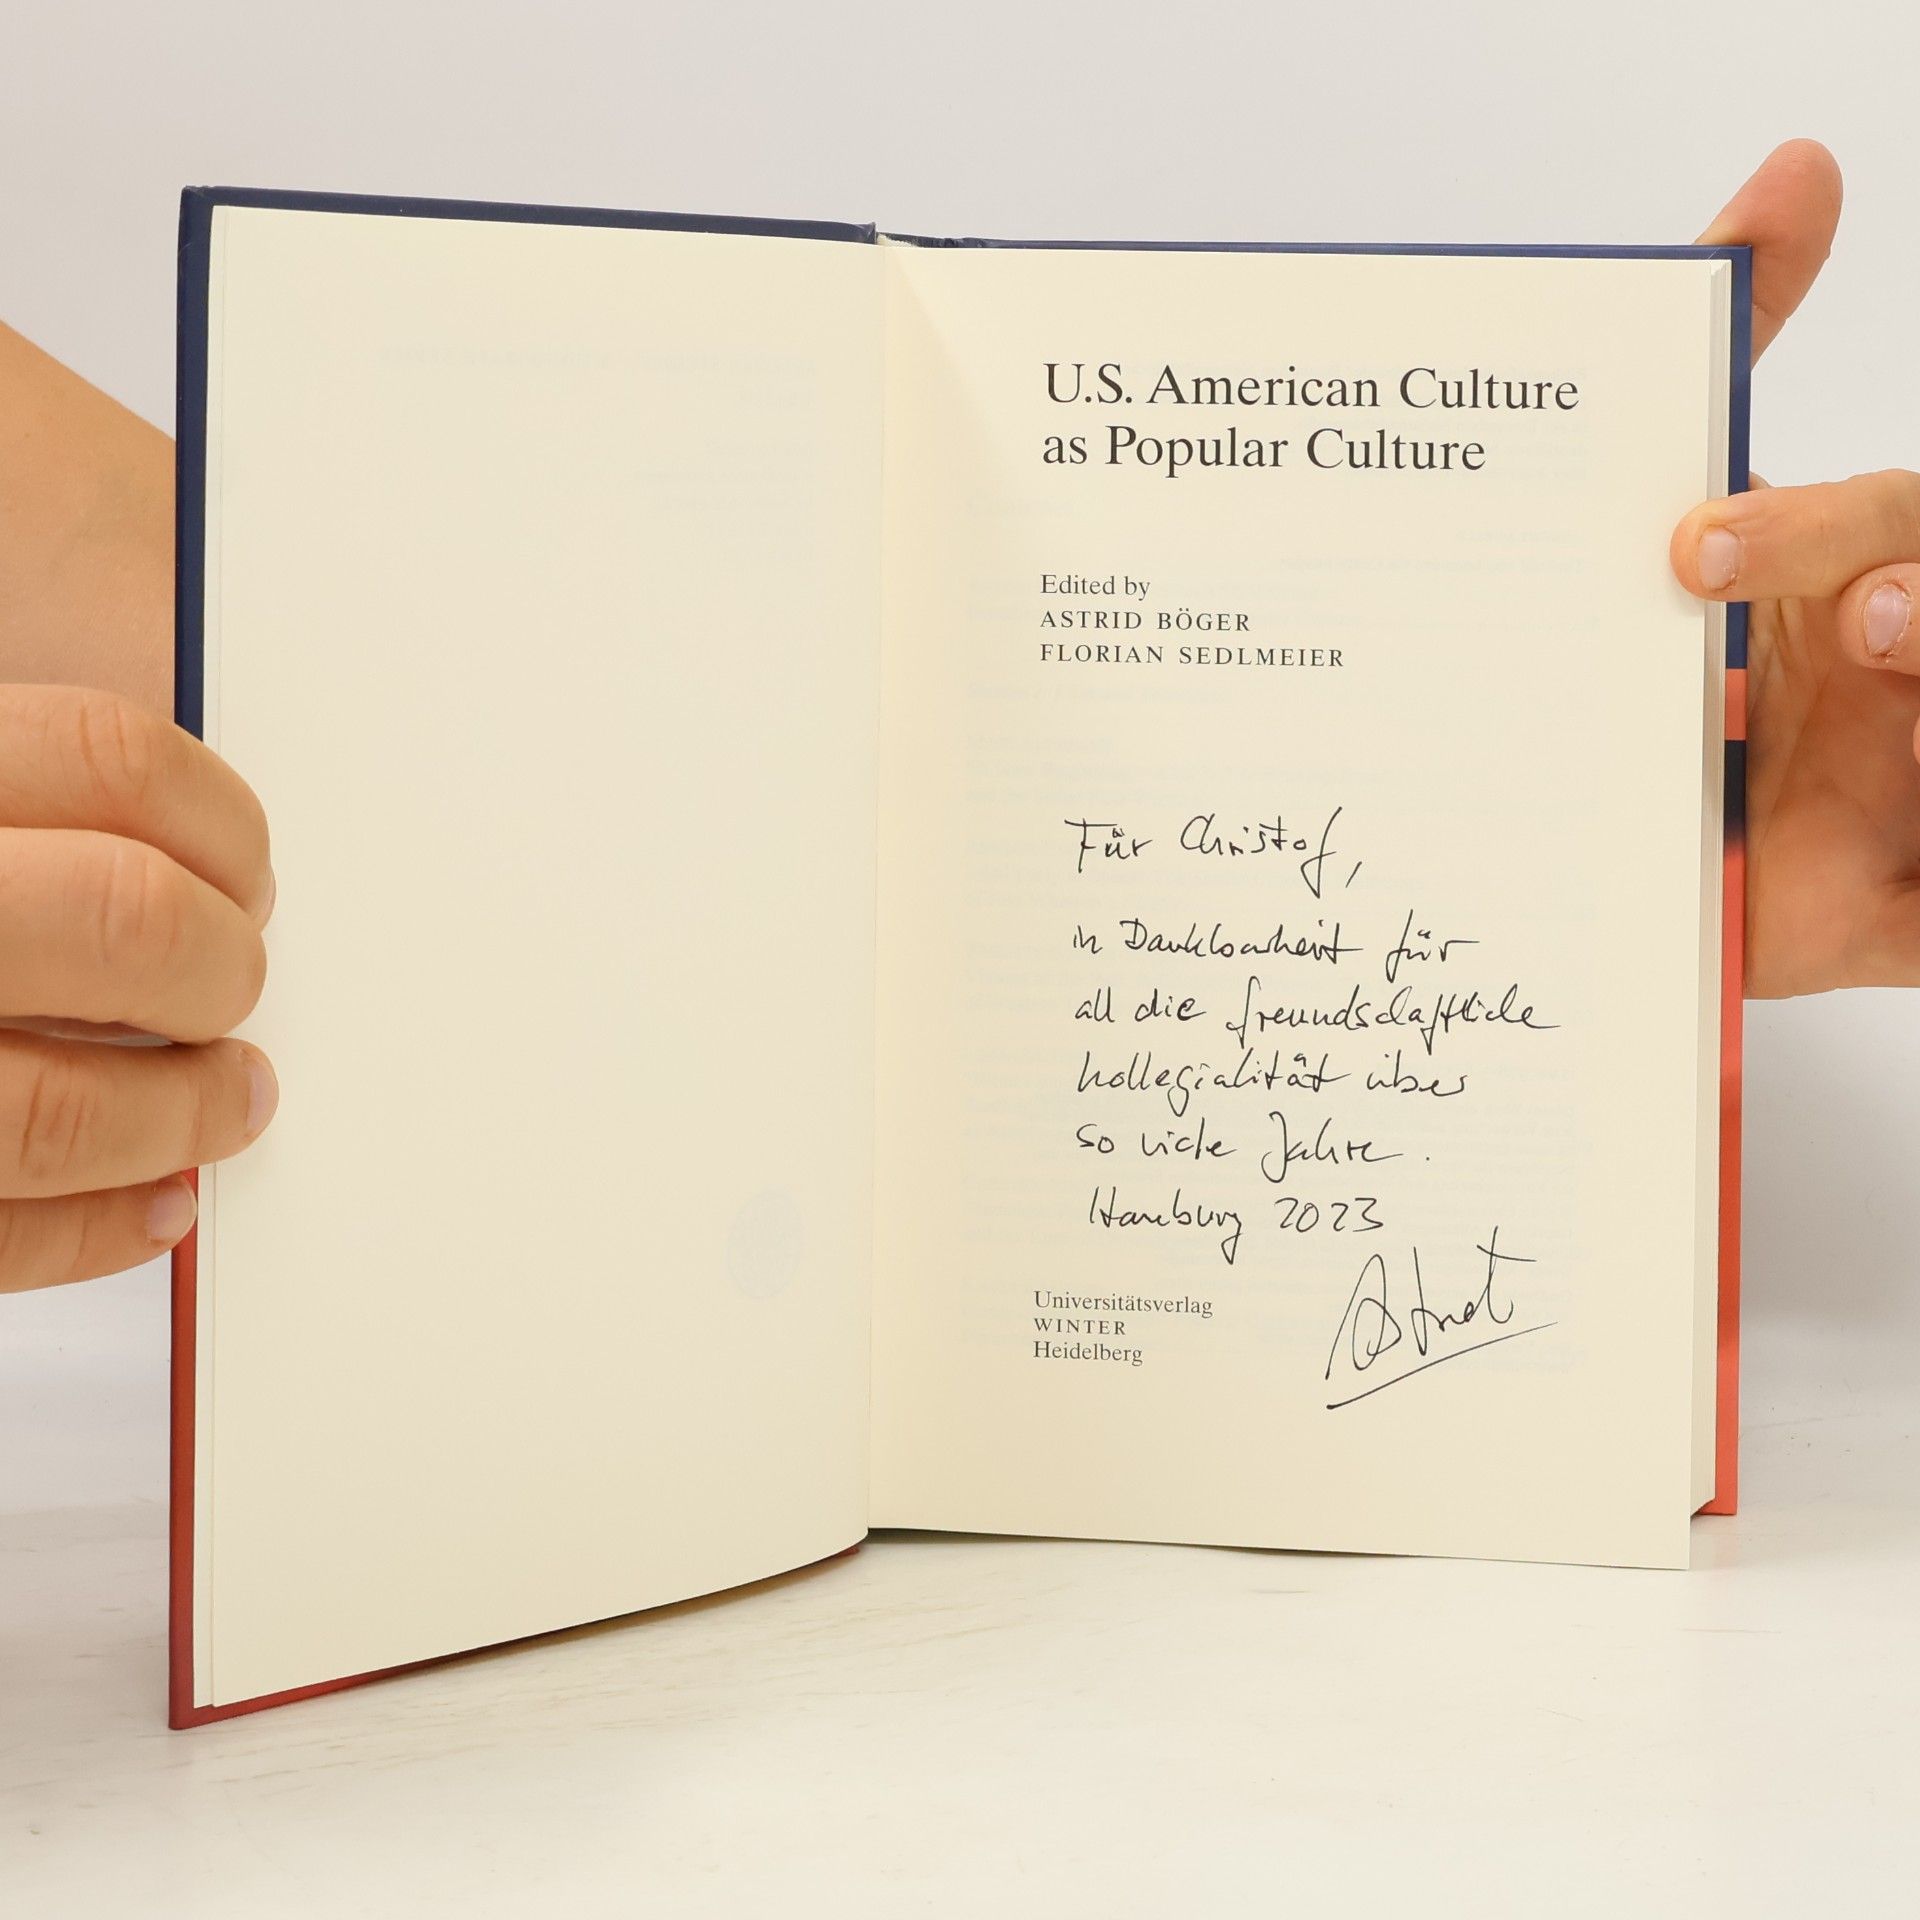 U.S. American Culture
as Popular Culture
Edited by
ASTRID BÖGER
FLORIAN SEDLMEIER
Für Christof,
in Dankbarkeit für
all die freundschaftliche
Kollegialität über
so viele Jahre.
Hamburg 2023
Astrid
Universitätsverlag
WINTER
Heidelberg